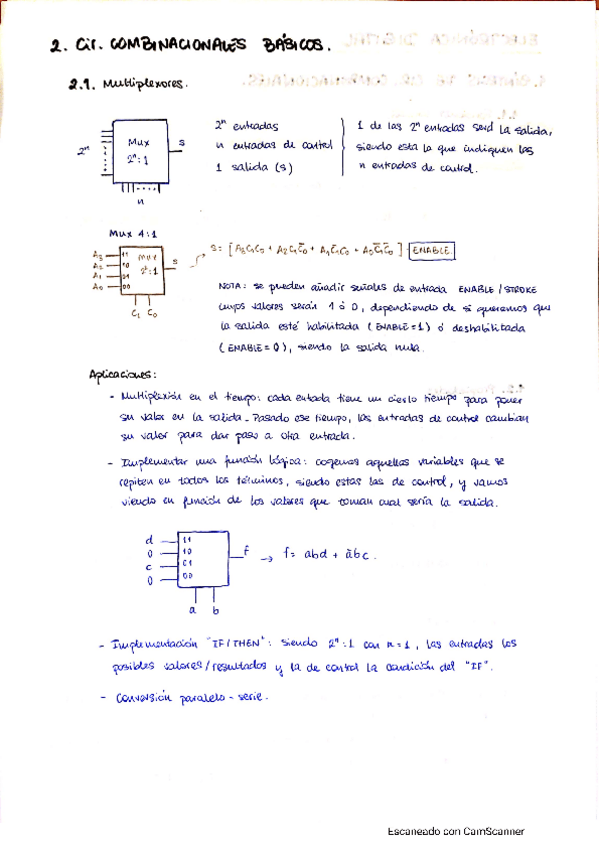 2. Cir. COMBINACIONALES BÁSICOS.
2.1. Multiplexores.
2ⁿ
Mux
2ⁿ:1
s
n
2ⁿ entradas
n entradas de control
1 salida (s)
1 de las 2ⁿ entradas será la salida,
siendo esta la que indiquen las
n entradas de control.
Mux 4:1
A₃ 11
A₂ 10
A₁ 01
A₀ 00
Mux
2²:1
s
C₁ C₀
s = [A₃C₁C₀ + A₂C₁C̄₀ + A₁C̄₁C₀ + A₀C̄₁C̄₀] ENABLE
NOTA: se pueden añadir señales de entrada ENABLE / STROKE
cuyos valores serán 1 ó 0, dependiendo de si queremos que
la salida esté habilitada (ENABLE = 1) ó deshabilitada
(ENABLE = 0), siendo la salida nula.
Aplicaciones:
- Multiplexión en el tiempo: cada entada tiene un cierto tiempo para poner
su valor en la salida. Pasado ese tiempo, las entradas de control cambian
su valor para dar paso a otra entrada.
- Implementar una función lógica: cogemos aquellas variables que se
repiten en todos los términos, siendo estas las de control, y vamos
viendo en función de los valores que toman cual sería la salida.
d 11
0 10
c 01
0 00
f
a b
→ f = abd + ābc.
- Implementación "IF/THEN": siendo 2ⁿ:1 con n=1, las entradas los
posibles valores/resultados y la de control la condición del "IF".
- Conversión paralelo - serie.
Escaneado con CamScanner